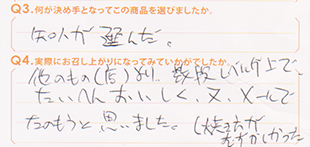 Q3.何が決め手となってこの商品を選びましたか。
知人が選んだ。
Q4.実際にお召し上がりになってみていかがでしたか。
他のもの(店)より、数段レベルが上で、
たいへんおいしく、又、メールで
たのもうと思いました。(焼き方が
むずかしかった